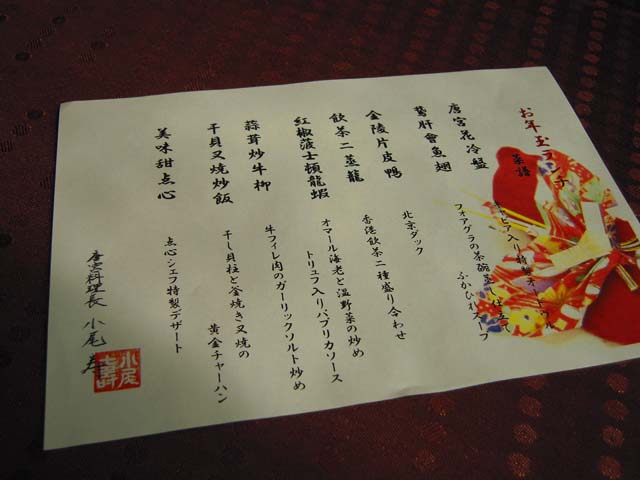 お年玉ランチ
菜譜
唐宮花冷盤
キャビア入り特製オードヴル
鵞肝會魚翅
フォアグラの茶碗蒸し仕立て
ふかひれスープ
金陵片皮鴨
北京ダック
飲茶二蒸籠
香港飲茶二種盛り合わせ
紅椒菠士頓龍蝦
オマール海老と温野菜の炒め
トリュフ入りパプリカソース
蒜茸炒牛柳
牛フィレ肉のガーリックソルト炒め
干貝叉焼炒飯
干し貝柱と釜焼き叉焼の
黄金チャーハン
美味甜点心
点心シェフ特製デザート
唐宮料理長 小尾
小尾